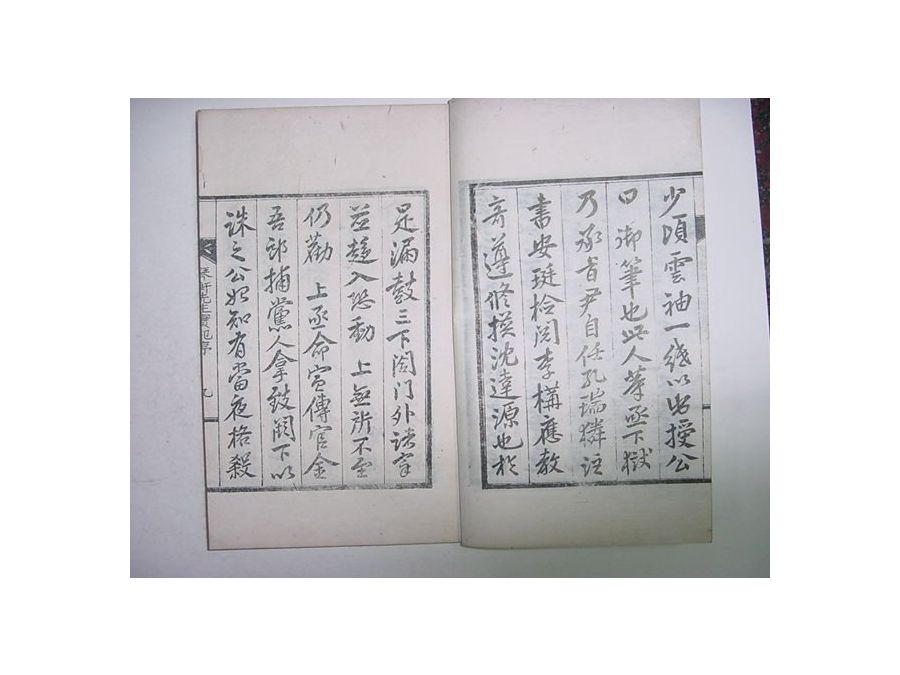 少頃雲袖一紙以出授公
曰 御筆也此人等亟下獄
乃承旨尹自任孔瑞麟注
書安珽檢閱李構應教
奇遵修撰沈達源也於
是漏鼓三下閤门外諸宰
並趍入恐動 上無所不至
仍勸 上亟命宣傳官金
吾郎捕黨人拿致闕下以
誅之公始知有當夜格殺
先生實記序 九